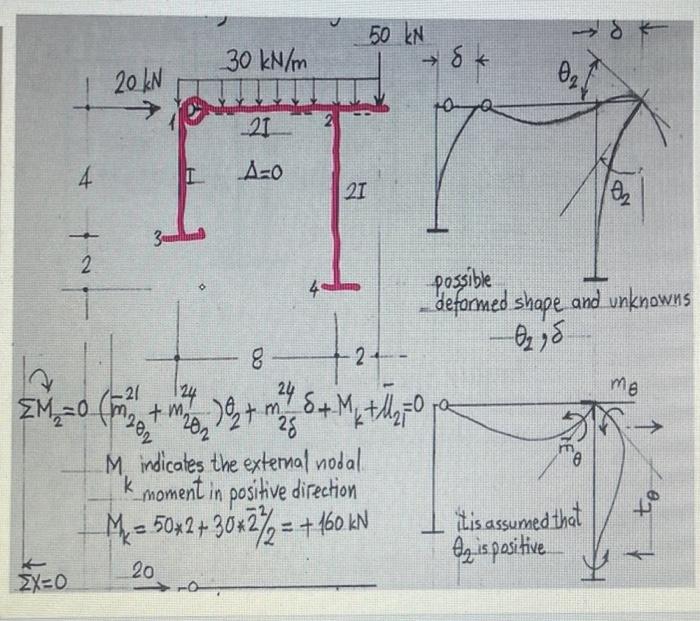 50 kN
30 kN/m
20 kN
→ δ ←
→ δ ←
θ2
1
2I
2
4
I
Δ=0
2I
θ2
3
2
4
possible
deformed shape and unknowns
θ2, δ
8
2
ΣM2=0 (m̄2θ2^21 + m2θ2^24)θ2 + m2δ^24 δ + Mk + μ̄21=0
mθ
m̄θ
Mk indicates the external nodal
moment in positive direction
Mk = 50*2+30*2²/2 = +160 kN
it is assumed that
θ2 is positive
ΣX=0
20